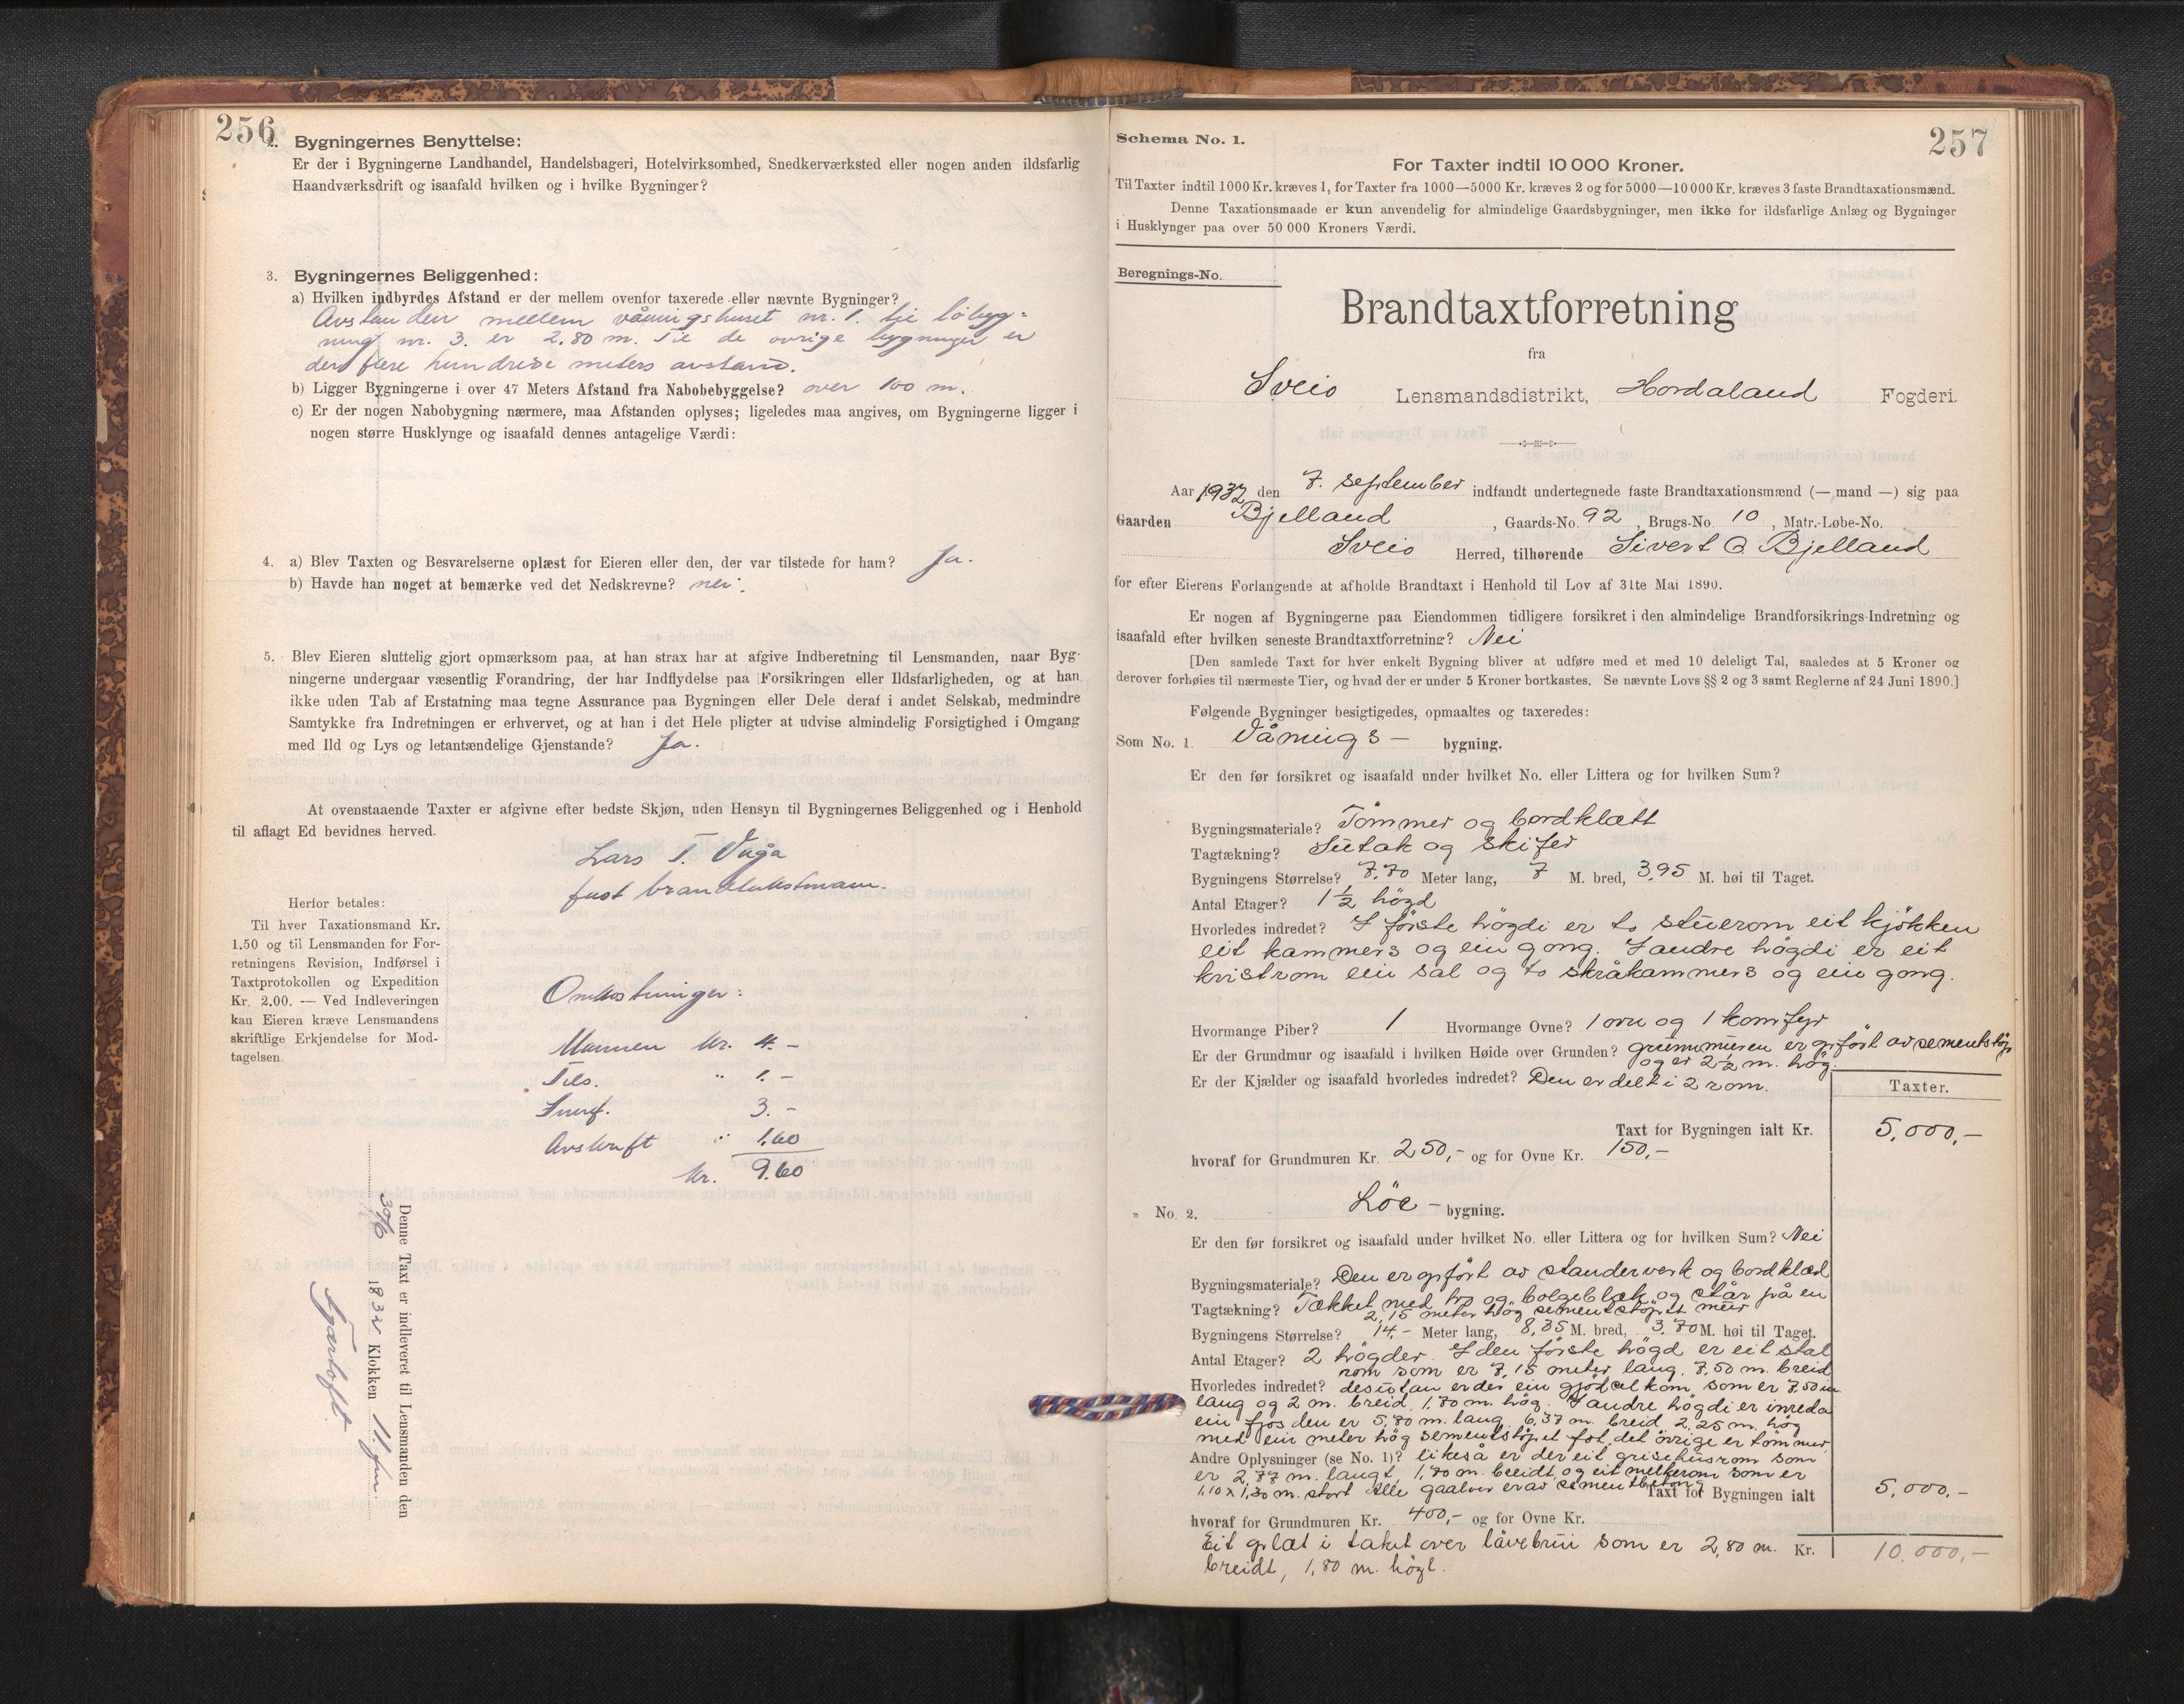 256
2. Bygningernes Benyttelse:
Er der i Bygningerne Landhandel, Handelsbageri, Hotelvirksomhed, Snedkerværksted eller nogen anden ildsfarlig
Haandværksdrift og isaafald hvilken og i hvilke Bygninger?
3. Bygningernes Beliggenhed:
a) Hvilken indbyrdes Afstand er der mellem ovenfor taxerede eller nævnte Bygninger?
Avstanden mellem våningshuset nr. 1. til löbyg-
ning nr. 3. er 2.80 m. Til de øvrige bygninger er
der flere hundrede meters avstand.
b) Ligger Bygningerne i over 47 Meters Afstand fra Nabobebyggelse? over 100 m.
c) Er der nogen Nabobygning nærmere, maa Afstanden oplyses; ligeledes maa angives, om Bygningerne ligger i
nogen større Husklynge og isaafald dennes antagelige Værdi:
4. a) Blev Taxten og Besvarelserne oplæst for Eieren eller den, der var tilstede for ham? Ja.
b) Havde han noget at bemærke ved det Nedskrevne? nei.
5. Blev Eieren sluttelig gjort opmærksom paa, at han strax har at afgive Indberetning til Lensmanden, naar Byg-
ningerne undergaar væsentlig Forandring, der har Indflydelse paa Forsikringen eller Ildsfarligheden, og at han
ikke uden Tab af Erstatning maa tegne Assurance paa Bygningen eller Dele deraf i andet Selskab, medmindre
Samtykke fra Indretningen er erhvervet, og at han i det Hele pligter at udvise almindelig Forsigtighed i Omgang
med Ild og Lys og letantændelige Gjenstande? Ja.
At ovenstaaende Taxter er afgivne efter bedste Skjøn, uden Hensyn til Bygningernes Beliggenhed og i Henhold
til aflagt Ed bevidnes herved.
Lars T. Våga
fast brandtakstmann.
Herfor betales:
Til hver Taxationsmand Kr.
1.50 og til Lensmanden for For-
retningens Revision, Indførsel i
Taxtprotokollen og Expedition
Kr. 2.00. — Ved Indleveringen
kan Eieren kræve Lensmandens
skriftlige Erkjendelse for Mod-
tagelsen.
Omkostninger:
Mannen kr. 4.-
Tils. " 1.-
Innf. 3.-
Avskrift " 1.60
kr. 9.60
Denne Taxt er indleveret til Lensmanden den
30/6 1832 Klokken 11 fm.
Schema No. 1.
257
For Taxter indtil 10 000 Kroner.
Til Taxter indtil 1000 Kr. kræves 1, for Taxter fra 1000—5000 Kr. kræves 2 og for 5000—10 000 Kr. kræves 3 faste Brandtaxationsmænd.
Denne Taxationsmaade er kun anvendelig for almindelige Gaardsbygninger, men ikke for ildsfarlige Anlæg og Bygninger
i Husklynger paa over 50 000 Kroners Værdi.
Beregnings-No.
Brandtaxtforretning
fra
Sveio Lensmandsdistrikt, Hordaland Fogderi.
Aar 1932 den 7. september indfandt undertegnede faste Brandtaxationsmænd (— mand —) sig paa
Gaarden Bjelland, Gaards-No. 92, Brugs-No. 10, Matr.-Løbe-No.
Sveio Herred, tilhørende Sivert O Bjelland
for efter Eierens Forlangende at afholde Brandtaxt i Henhold til Lov af 31te Mai 1890.
Er nogen af Bygningerne paa Eiendommen tidligere forsikret i den almindelige Brandforsikrings-Indretning og
isaafald efter hvilken seneste Brandtaxtforretning? Nei
[Den samlede Taxt for hver enkelt Bygning bliver at udføre med et med 10 deleligt Tal, saaledes at 5 Kroner og
derover forhøies til nærmeste Tier, og hvad der er under 5 Kroner bortkastes. Se nævnte Lovs §§ 2 og 3 samt Reglerne af 24 Juni 1890.]
Følgende Bygninger besigtigedes, opmaaltes og taxeredes:
Som No. 1. Vånings- bygning.
Er den før forsikret og isaafald under hvilket No. eller Littera og for hvilken Sum?
Bygningsmateriale? Tömmer og bordklætt
Tagtækning? Sutak og skifer
Bygningens Størrelse? 7.70 Meter lang, 7 M. bred, 3,95 M. høi til Taget.
Antal Etager? 1 ½ högd
Hvorledes indredet? I förste högdi er to stuerom eit kjökken
eit kammers og ein gong. I andre högdi er eit
kvistrom ein sal og to skråkammers og ein gong.
Hvormange Piber? 1 Hvormange Ovne? 1 ovn og 1 komfyr
Er der Grundmur og isaafald i hvilken Høide over Grunden? grunnmuren er opfört av sementstöp
og er 2 ½ m. hög.
Er der Kjælder og isaafald hvorledes indredet? Den er delt i 2 rom.
Taxter.
Taxt for Bygningen ialt Kr. 5,000,-
hvoraf for Grundmuren Kr. 250,- og for Ovne Kr. 150,-
" No. 2. Löe- bygning.
Er den før forsikret og isaafald under hvilket No. eller Littera og for hvilken Sum? Nei
Bygningsmateriale? Den er opfört av standerverk og bordklæd
Tagtækning? Tækket med tro og bolgeblekk og står på en
2,15 meter hög sementstöpt mur
Bygningens Størrelse? 14.- Meter lang, 8,35 M. bred, 3.70 M. høi til Taget.
Antal Etager? 2 högder. I den förste högd er eit stal
rom som er 7,15 meter lang. 7.50 m. breid
Hvorledes indredet? desutan er der ein gjödselkom, som er 7.50 m
lang og 2 m. breid, 1,70 m. hög. I andre högdi er inreda
ein fjos den er 5,70 m. lang, 6,37 m. breid 2,25 m. hög
med ein meter hög sementstöpet fot, det övrige er tömmer.
Andre Oplysninger (se No. 1)? likeså er der eit grisehusrom som
er 2,77 m. langt, 1,70 m. breidt, og eit melkerom som er
1,10 x 1,30 m. stort Alle gaalver er av sementbetong
Taxt for Bygningen ialt 5,000,-
hvoraf for Grundmuren Kr. 400,- og for Ovne Kr.
Eit oplæt i taket over låvebrui som er 2,80 m. Kr. 10.000,-
breidt, 1,80 m. högt.